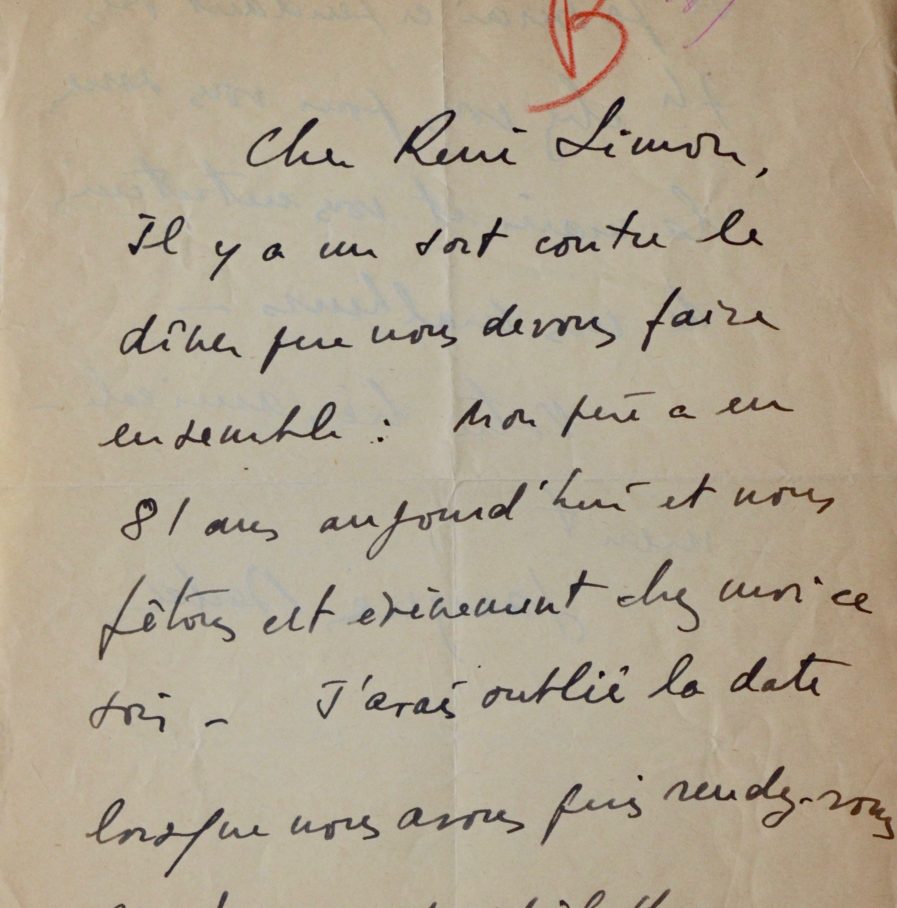 B
Cher René Simon,
Il y a un sort contre le
dîner que nous devons faire
ensemble : Mon père a eu
81 ans aujourd'hui et nous
fêtons cet évènement chez moi ce
soir - J'avais oublié la date
lorsque nous avons pris rendez-vous